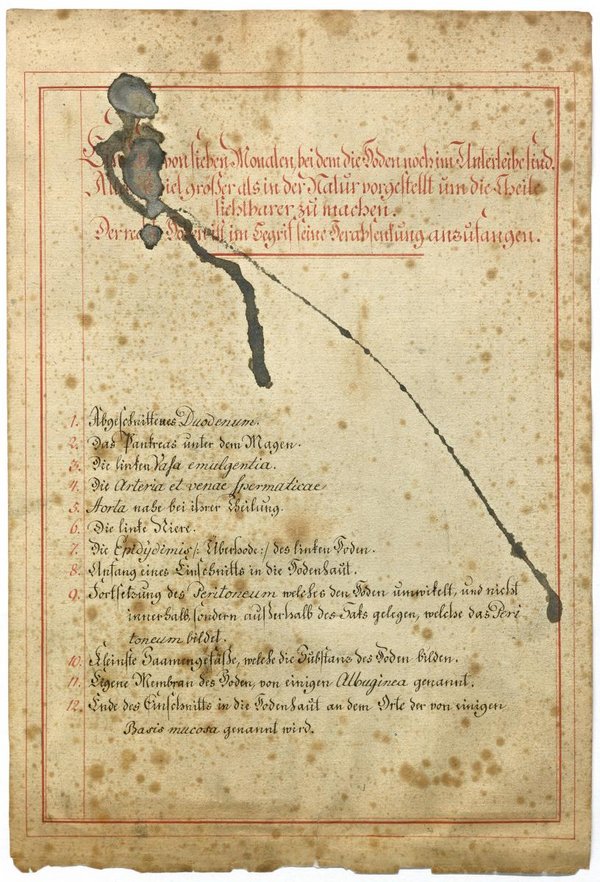 von sieben Monaten, bei dem die Hoden noch im Unterleibe sind.
viel größer als in der Natur vorgestellt um die Theile
sichtbarer zu machen.
Der im Begrif seine Herabsenkung anzufangen.
1. Abgeschnittenes Duodenum.
2. Das Pankreas unter dem Magen.
3. Die linken Vasa emulgentia.
4. Die Arteria et venae spermaticae
5. Aorta nahe bei ihrer Theilung.
6. Die linke Niere.
7. Die Epidydimis /: Überhode :/ des linken Hoden.
8. Anfang eines Einschnitts in die Hodenhaut.
9. Fortsetzung des Peritoneum welches den Hoden umwikelt, und nicht
innerhalb sondern außerhalb des Saks gelegen, welche das Peri
toneum bildet.
10. Kleinste Saamengefäße, welche die Substanz des Hoden bilden.
11. Eigene Membran des Hoden, von einigen Albuginea genannt.
12. Ende des Einschnitts in die Hodenhaut an dem Orte der von einigen
Basis mucosa genannt wird.